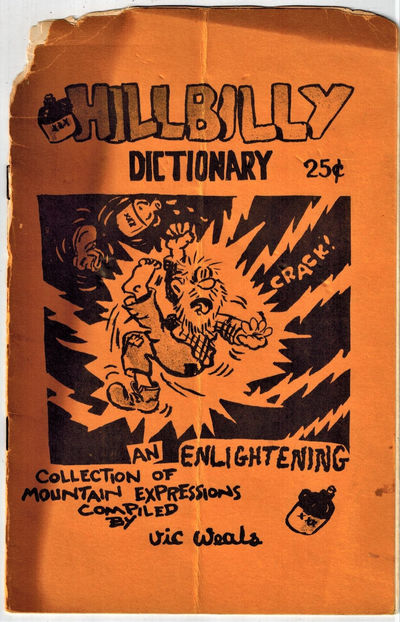 XXX
HILLBILLY
DICTIONARY 25¢
CRACK!
AN ENLIGHTENING
COLLECTION OF
MOUNTAIN EXPRESSIONS
COMPILED
BY
Vic Weals
XXX